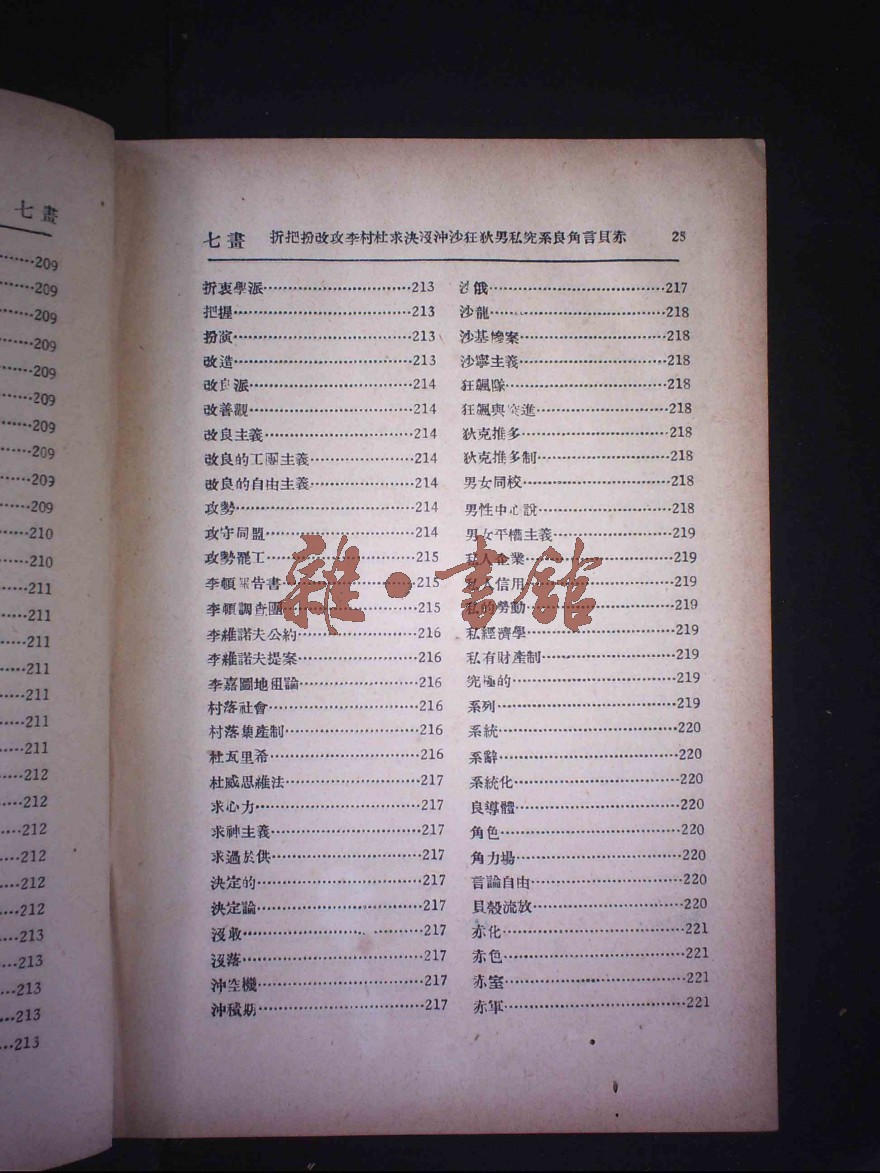 七畫
209
209
209
209
209
209
209
209
209
209
210
210
211
211
211
211
211
211
211
212
212
212
212
212
212
213
213
213
213
213
七畫 折把扮改攻李村杜求決沒沖沙狂狄男私究系良角言貝赤 25
折衷學派…………213
把握…………213
扮演…………213
改造…………213
改良派…………214
改善觀…………214
改良主義…………214
改良的工團主義…………214
改良的自由主義…………214
攻勢…………214
攻守同盟…………214
攻勢罷工…………215
李頓報告書…………215
李頓調查團…………215
李維諾夫公約…………216
李維諾夫提案…………216
李嘉圖地租論…………216
村落社會…………216
村落集產制…………216
杜瓦里希…………216
杜威思維法…………217
求心力…………217
求神主義…………217
求過於供…………217
決定的…………217
決定論…………217
沒收…………217
沒落…………217
沖空機…………217
沖積期…………217
沙俄…………217
沙龍…………218
沙基慘案…………218
沙寧主義…………218
狂飆隊…………218
狂飆與突進…………218
狄克推多…………218
狄克推多制…………218
男女同校…………218
男性中心說…………218
男女平權主義…………219
私人企業…………219
私人信用…………219
私的勞動…………219
私經濟學…………219
私有財產制…………219
究極的…………219
系列…………219
系統…………220
系辭…………220
系統化…………220
良導體…………220
角色…………220
角力場…………220
言論自由…………220
貝殼流放…………220
赤化…………221
赤色…………221
赤室…………221
赤軍…………221
雜·書館